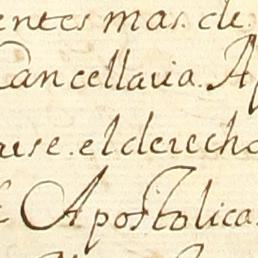 entes mas. de.
Cancellaria. A
arse. el derecho
Apostolica.